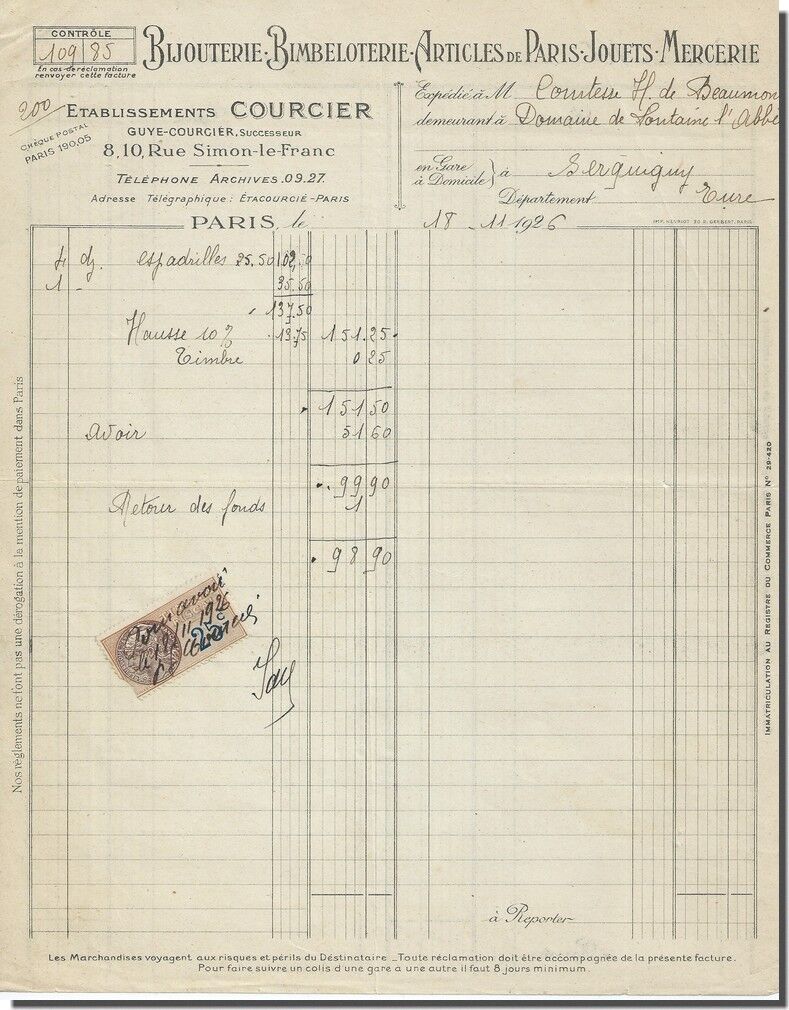 CONTRÔLE
109 85
En cas de réclamation
renvoyer cette facture
BIJOUTERIE · BIMBELOTERIE · ARTICLES DE PARIS · JOUETS · MERCERIE
200
CHÈQUE POSTAL
PARIS 190.05
ETABLISSEMENTS COURCIER
GUYE-COURCIER, SUCCESSEUR
8, 10, Rue Simon-le-Franc
TÉLÉPHONE ARCHIVES .09.27.
Adresse Télégraphique : ÉTACOURCIÉ-PARIS
Expédié à M Comtesse H. de Beaumon
demeurant à Domaine de Fontaine l'Abbé
en Gare
à Domicile } à Serquigny
Département Eure
PARIS, le 18 - 11 1926
IMP. HENRIOT
4 dz espadrilles 25.50 102,50
1 - 35.50
137.50
Hausse 10% 13.75 151.25
Timbre 0 25
151 50
Avoir 51 60
99 90
Retour des fonds 1
98 90
Pour
le 18/11 1926
25c
à Reporter
Nos règlements ne font pas une dérogation à la mention de paiement dans Paris
IMMATRICULATION AU REGISTRE DU COMMERCE PARIS N° 29-420
Les Marchandises voyagent aux risques et périls du Déstinataire _ Toute réclamation doit être accompagnée de la présente facture.
Pour faire suivre un colis d'une gare a une autre il faut 8 jours minimum.